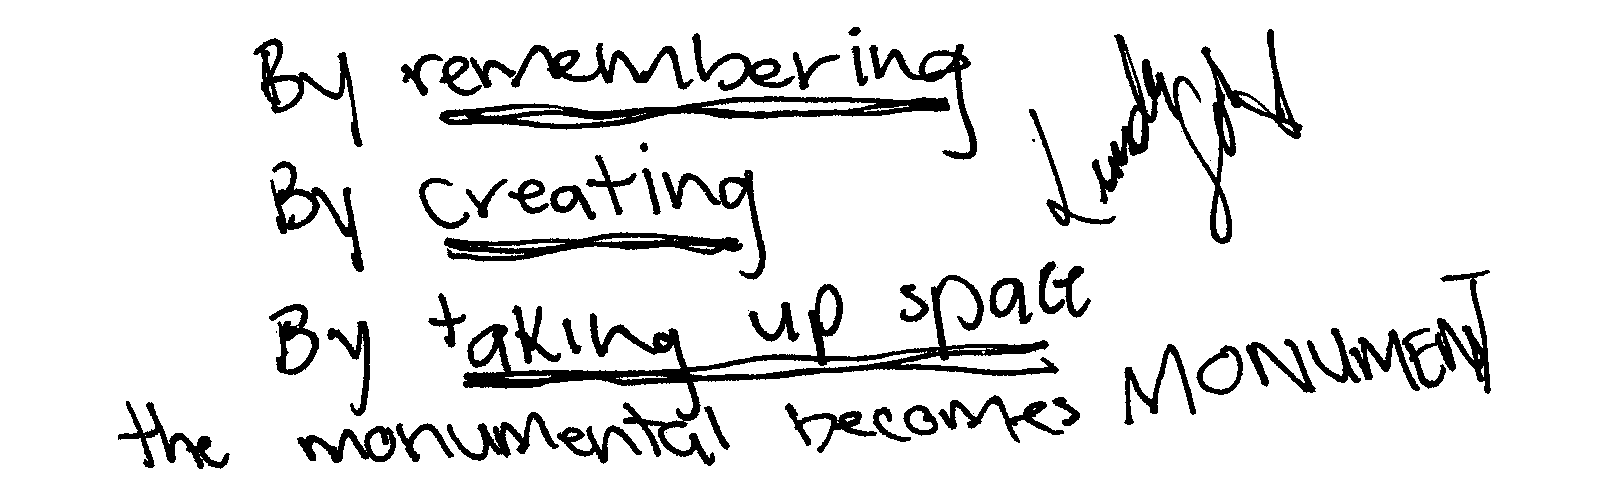 By remembering
By creating
By taking up space
the monumental becomes MONUMENT